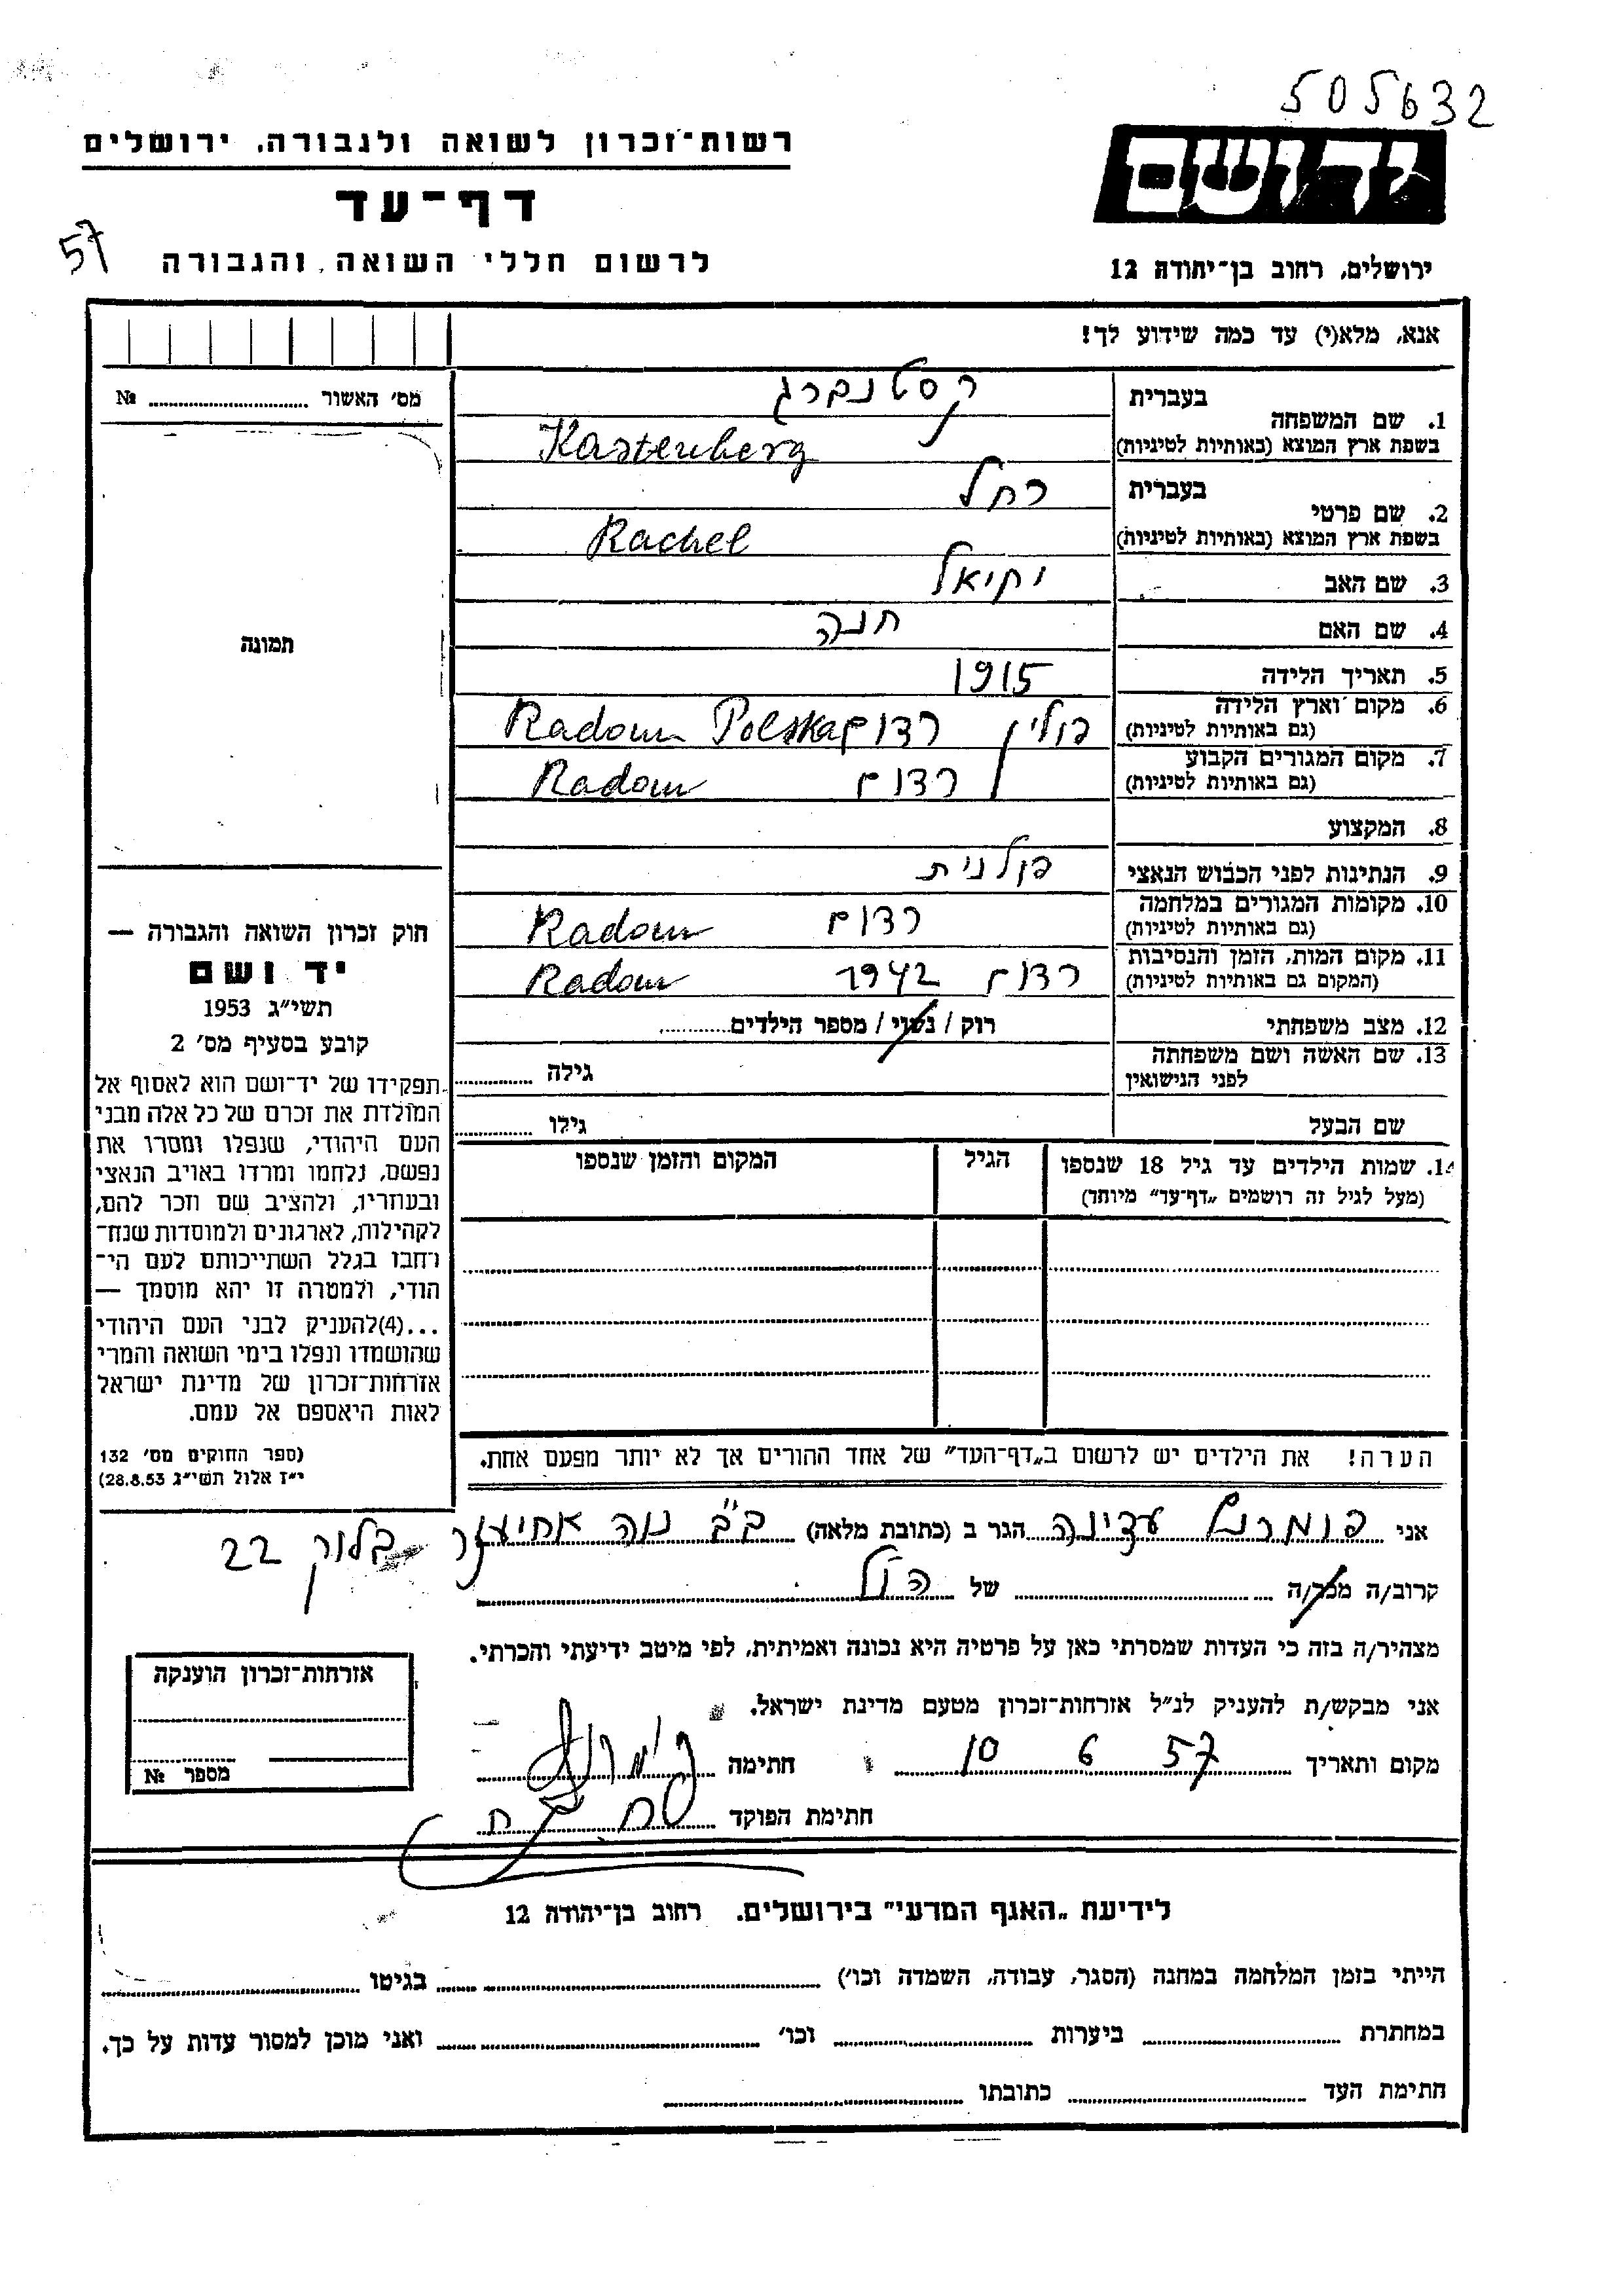 505632
רשות־זכרון לשואה ולגבורה, ירושלים
יד ושם
דף־עד
57
לרשום חללי השואה והגבורה
ירושלים, רחוב בן־יהודה 12
אנא, מלא(י) עד כמה שידוע לך!
מס׳ האשור № ........
1. שם המשפחה
בעברית קסטנברג
בשפת ארץ המוצא (באותיות לטיניות) Kastenberg
2. שם פרטי
בעברית רחל
בשפת ארץ המוצא (באותיות לטיניות) Rachel
3. שם האב יחיאל
4. שם האם חנה
5. תאריך הלידה 1915
6. מקום וארץ הלידה (גם באותיות לטיניות) פולין רדום Radom Polska
7. מקום המגורים הקבוע (גם באותיות לטיניות) רדום Radom
8. המקצוע
9. הנתינות לפני הכבוש הנאצי פולנית
10. מקומות המגורים במלחמה (גם באותיות לטיניות) רדום Radom
11. מקום המות, הזמן והנסיבות (המקום גם באותיות לטיניות) רדום 1942 Radom
12. מצב משפחתי רוק / נשוי / מספר הילדים........
13. שם האשה ושם משפחתה לפני הנישואין גילה ........
שם הבעל גילו ........
14. שמות הילדים עד גיל 18 שנספו
(מעל לגיל זה רושמים „דף־עד״ מיוחד)
הגיל
המקום והזמן שנספו
הערה! את הילדים יש לרשום ב„דף־העד״ של אחד ההורים אך לא יותר מפעם אחת.
תמונה
חוק זכרון השואה והגבורה —
יד ושם
תשי״ג 1953
קובע בסעיף מס׳ 2
תפקידו של יד־ושם הוא לאסוף אל
המולדת את זכרם של כל אלה מבני
העם היהודי, שנפלו ומסרו את
נפשם, נלחמו ומרדו באויב הנאצי
ובעוזריו, ולהציב שם וזכר להם,
לקהילות, לארגונים ולמוסדות שנח־
רחבו בגלל השתייכותם לעם הי־
הודי, ולמטרה זו יהא מוסמך —
...(4)להעניק לבני העם היהודי
שהושמדו ונפלו בימי השואה והמרי
אזרחות־זכרון של מדינת ישראל
לאות היאספם אל עמם.
(ספר החוקים מס׳ 132
י״ז אלול תשי״ג 28.8.53)
אני עדינה הגר ב (כתובת מלאה) ב״ב נוה אחיעזר בלוק 22
קרוב/ה מכר/ה ........ של ........
מצהיר/ה בזה כי העדות שמסרתי כאן על פרטיה היא נכונה ואמיתית, לפי מיטב ידיעתי והכרתי.
אני מבקש/ת להעניק לנ״ל אזרחות־זכרון מטעם מדינת ישראל.
מקום ותאריך 10 6 57 חתימה
חתימת הפוקד
אזרחות־זכרון הוענקה
מספר №
לידיעת „האגף המדעי״ בירושלים, רחוב בן־יהודה 12
הייתי בזמן המלחמה במחנה (הסגר, עבודה, השמדה וכו׳) ........ בגיטו ........
במחתרת ........ ביערות ........ וכו׳ ........ ואני מוכן למסור עדות על כך.
חתימת העד ........ כתובתו ........